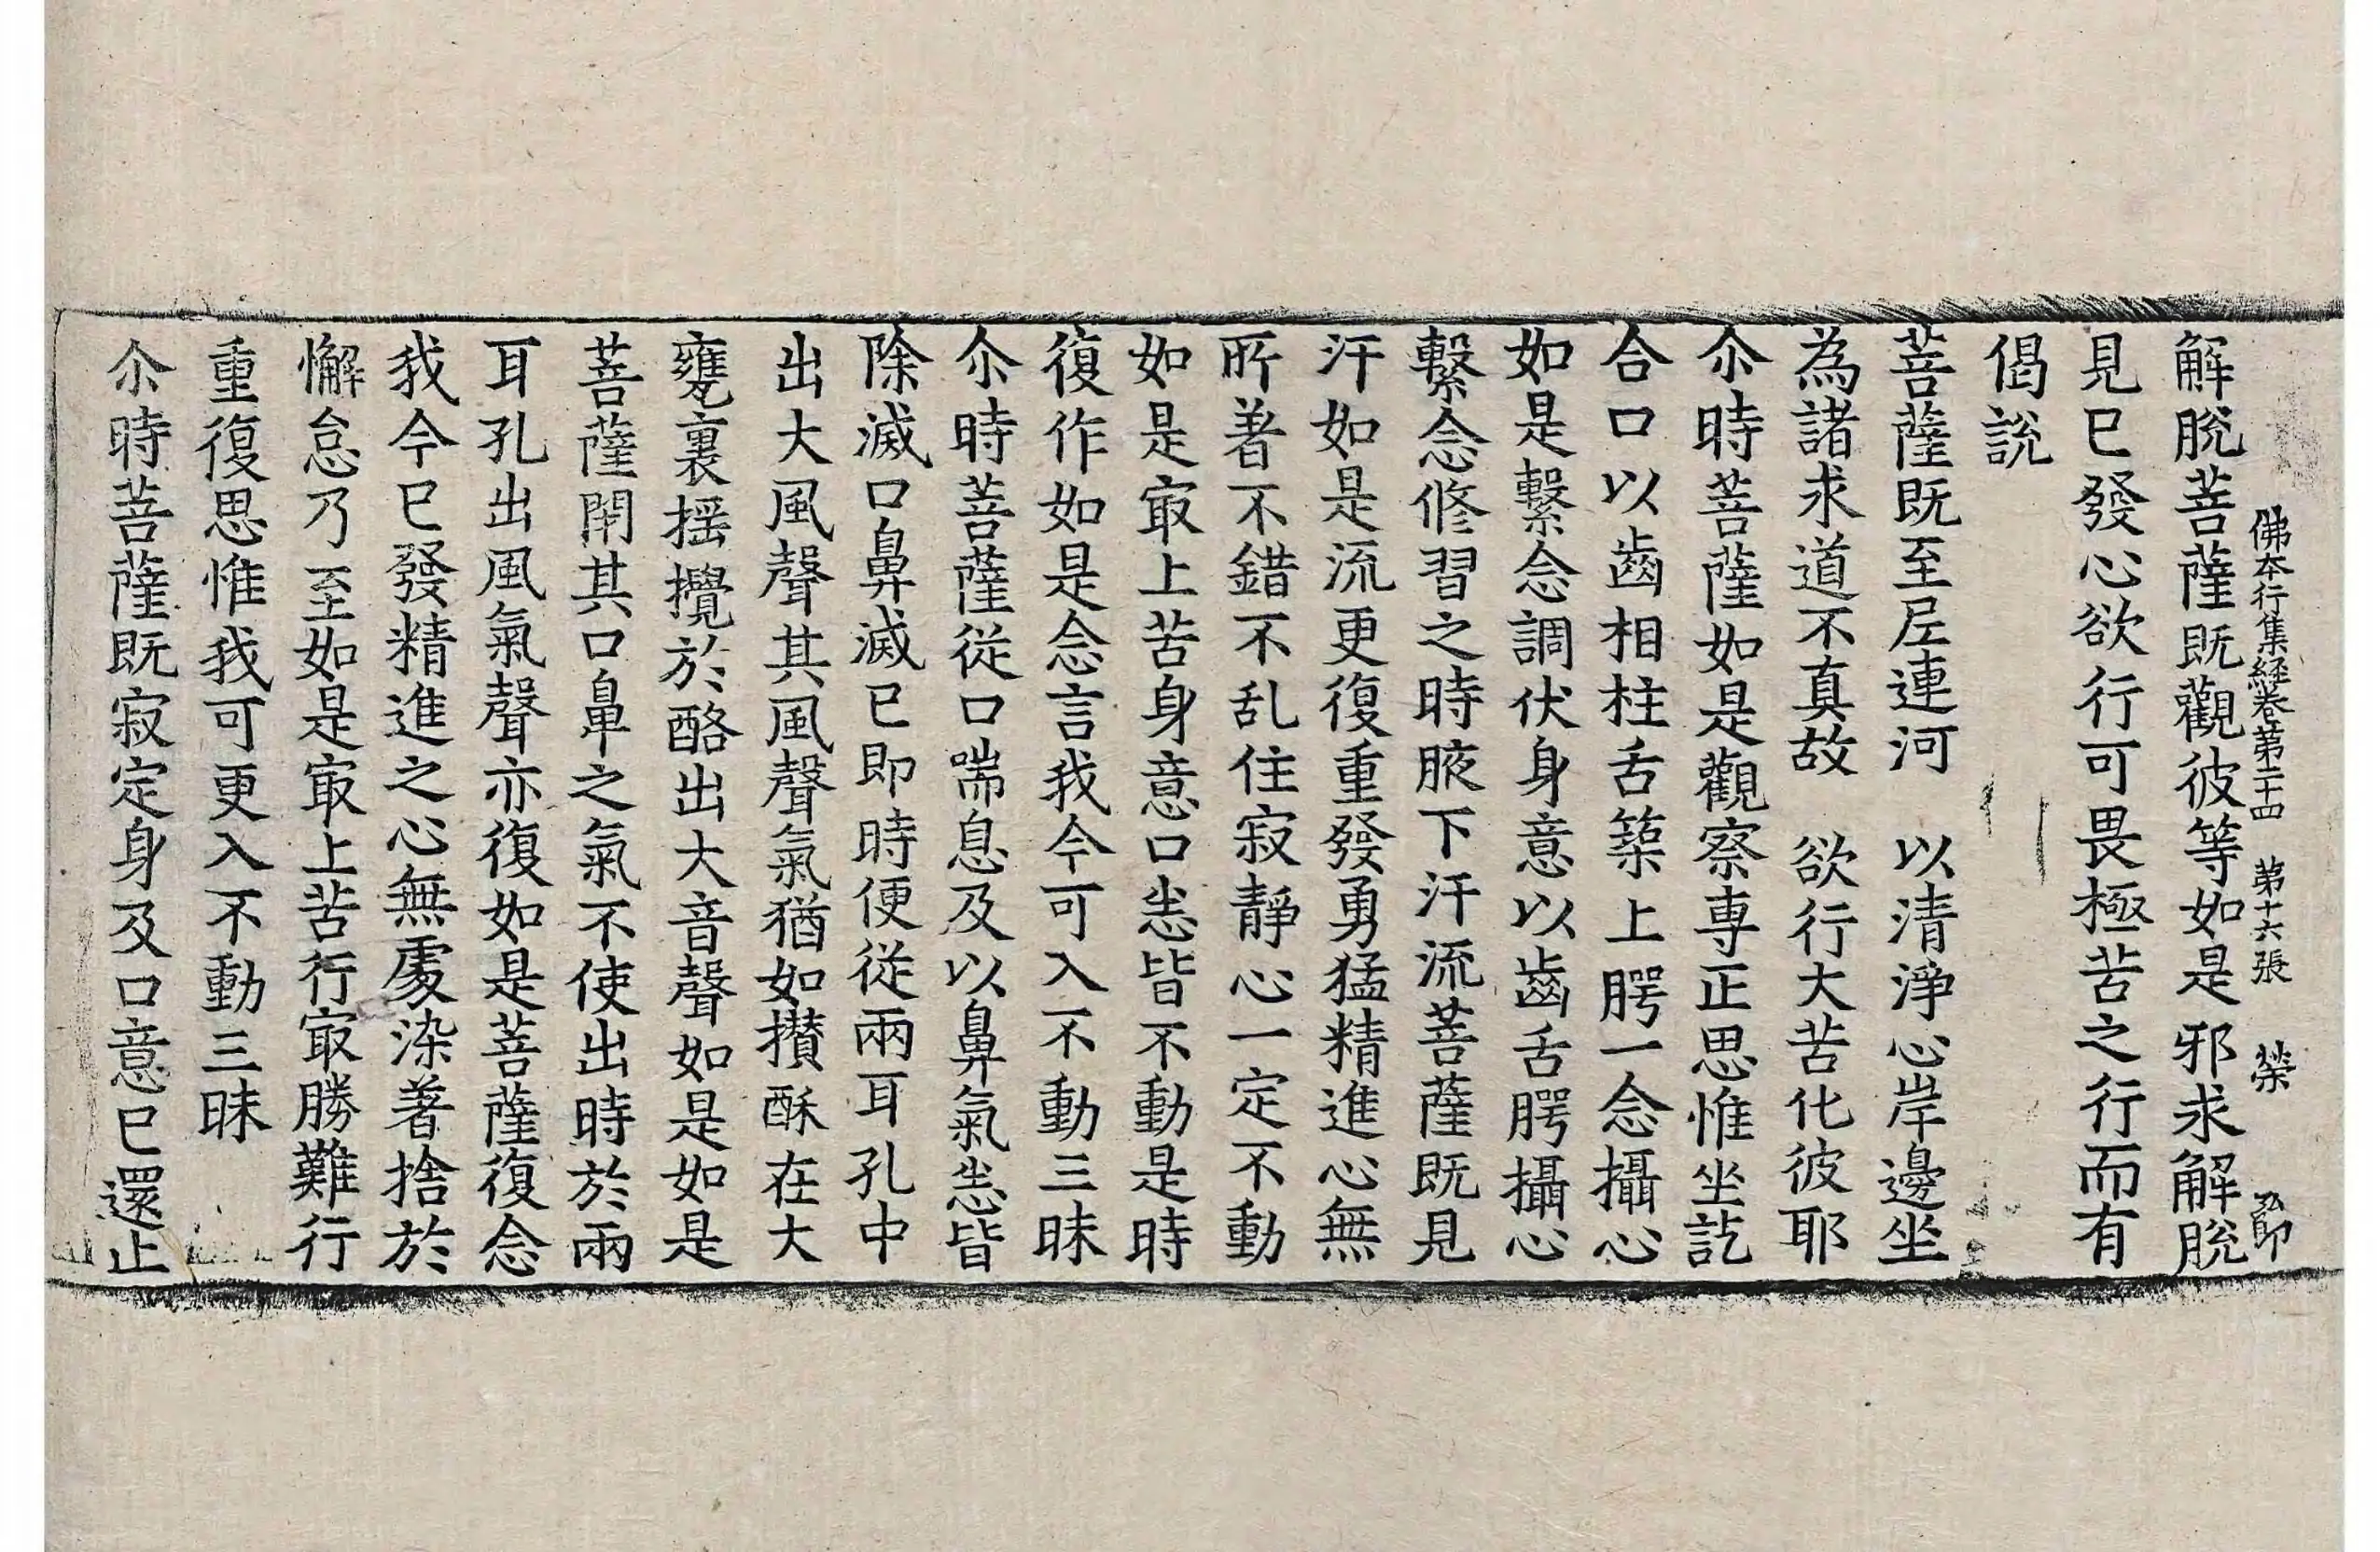 佛本行集経卷第二十四　第十六張　荣
解脫菩薩既觀彼等如是邪求解脫
見已發心欲行可畏極苦之行而有
偈說
菩薩既至尼連河　以清淨心岸邊坐
為諸求道不真故　欲行大苦化彼耶
尒時菩薩如是觀察專正思惟坐訖
合口以齒相柱舌築上腭一念攝心
如是繫念調伏身意以齒舌腭攝心
繫念修習之時腋下汗流菩薩既見
汗如是流更復重發勇猛精進心無
所著不錯不乱住寂靜心一定不動
如是㝡上苦身意口悉皆不動是時
復作如是念言我今可入不動三昧
尒時菩薩從口喘息及以鼻氣悉皆
除滅口鼻滅已即時便從兩耳孔中
出大風聲其風聲氣猶如攢酥在大
甕裏搖攪於酪出大音聲如是如是
菩薩閇其口鼻之氣不使出時於兩
耳孔出風氣聲亦復如是菩薩復念
我今已發精進之心無處染著捨於
懈怠乃至如是㝡上苦行㝡勝難行
重復思惟我可更入不動三昧
尒時菩薩既寂定身及口意已還止